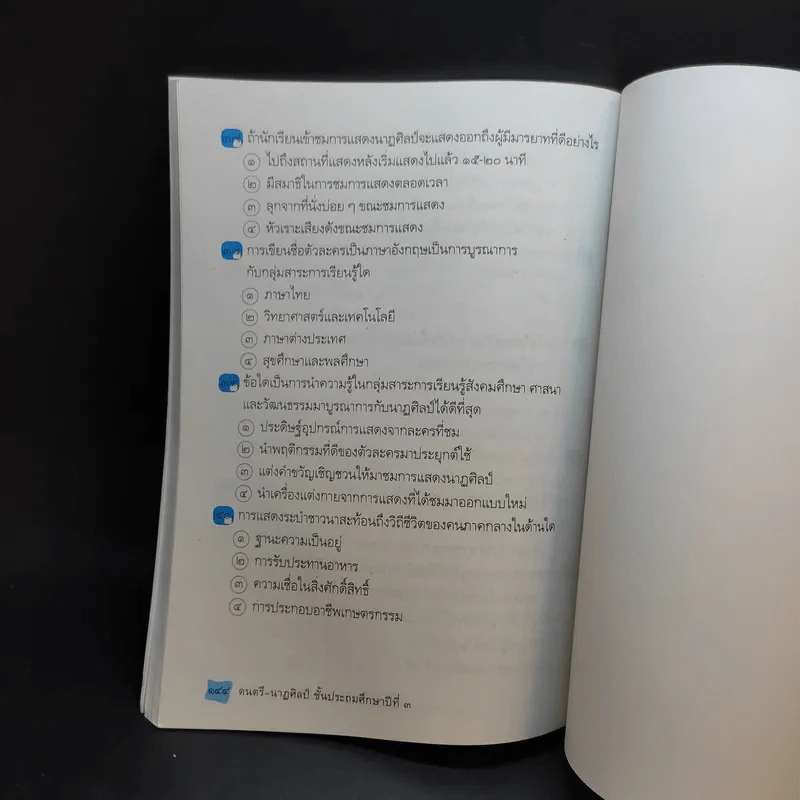 ๓๗ ถ้านักเรียนเข้าชมการแสดงนาฏศิลป์จะแสดงออกถึงผู้มีมารยาทที่ดีอย่างไร
๑ ไปถึงสถานที่แสดงหลังเริ่มแสดงไปแล้ว ๑๕-๒๐ นาที
๒ มีสมาธิในการชมการแสดงตลอดเวลา
๓ ลุกจากที่นั่งบ่อย ๆ ขณะชมการแสดง
๔ หัวเราะเสียงดังขณะชมการแสดง
๓๘ การเขียนชื่อตัวละครเป็นภาษาอังกฤษเป็นการบูรณาการ
กับกลุ่มสาระการเรียนรู้ใด
๑ ภาษาไทย
๒ วิทยาศาสตร์และเทคโนโลยี
๓ ภาษาต่างประเทศ
๔ สุขศึกษาและพลศึกษา
๓๙ ข้อใดเป็นการนำความรู้ในกลุ่มสาระการเรียนรู้สังคมศึกษา ศาสนา
และวัฒนธรรมมาบูรณาการกับนาฏศิลป์ได้ดีที่สุด
๑ ประดิษฐ์อุปกรณ์การแสดงจากละครที่ชม
๒ นำพฤติกรรมที่ดีของตัวละครมาประยุกต์ใช้
๓ แต่งคำขวัญเชิญชวนให้มาชมการแสดงนาฏศิลป์
๔ นำเครื่องแต่งกายจากการแสดงที่ได้ชมมาออกแบบใหม่
๔๐ การแสดงระบำชาวนาสะท้อนถึงวิถีชีวิตของคนภาคกลางในด้านใด
๑ ฐานะความเป็นอยู่
๒ การรับประทานอาหาร
๓ ความเชื่อในสิ่งศักดิ์สิทธิ์
๔ การประกอบอาชีพเกษตรกรรม
๑๔๔ ดนตรี-นาฏศิลป์ ชั้นประถมศึกษาปีที่ ๓